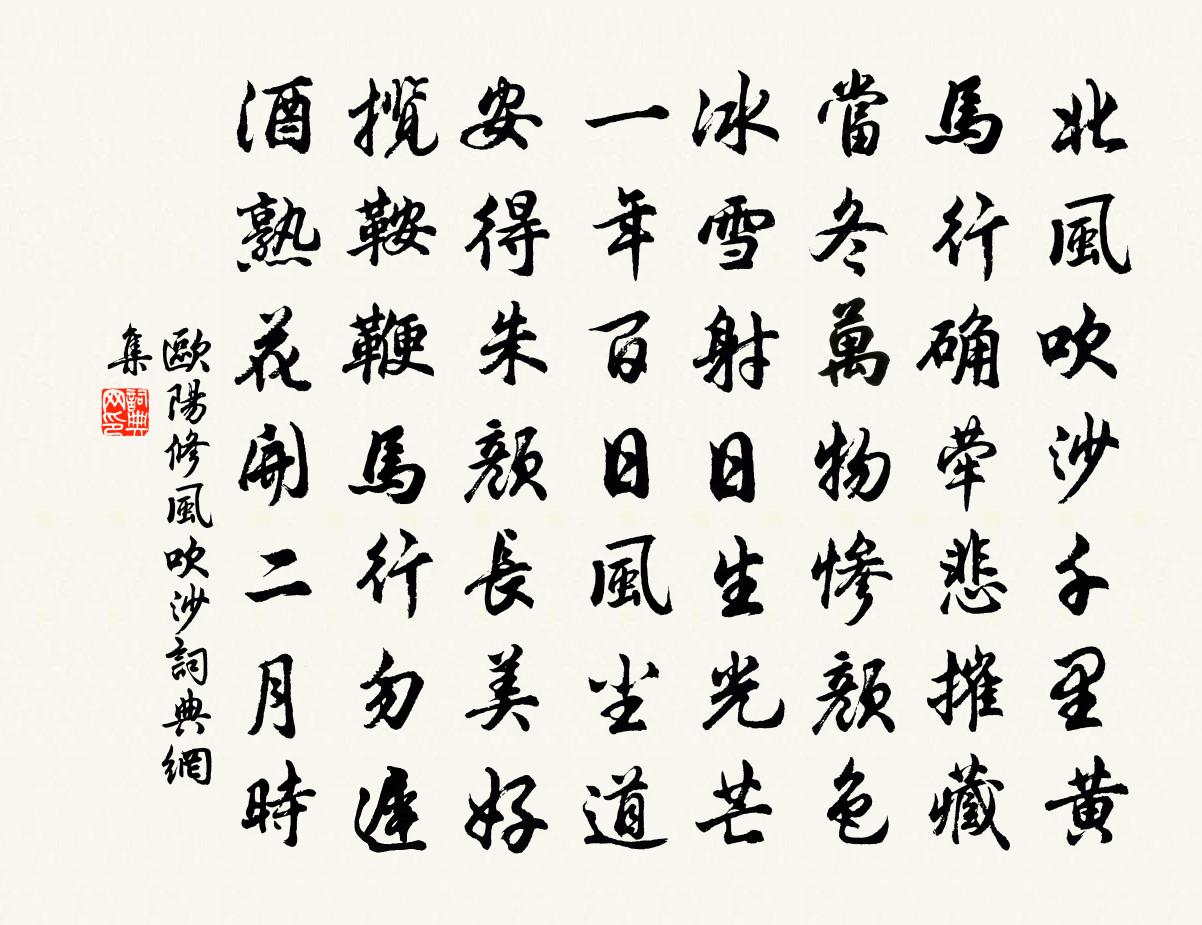 北風吹沙千里黄
馬行确犖悲摧藏
當冬萬物慘顔色
冰雪射日生光芒
一年百日風塵道
安得朱顔長美好
攬鞍鞭馬行勿遲
酒熟花開二月時
歐陽修風吹沙詞典網
集
詞典网印